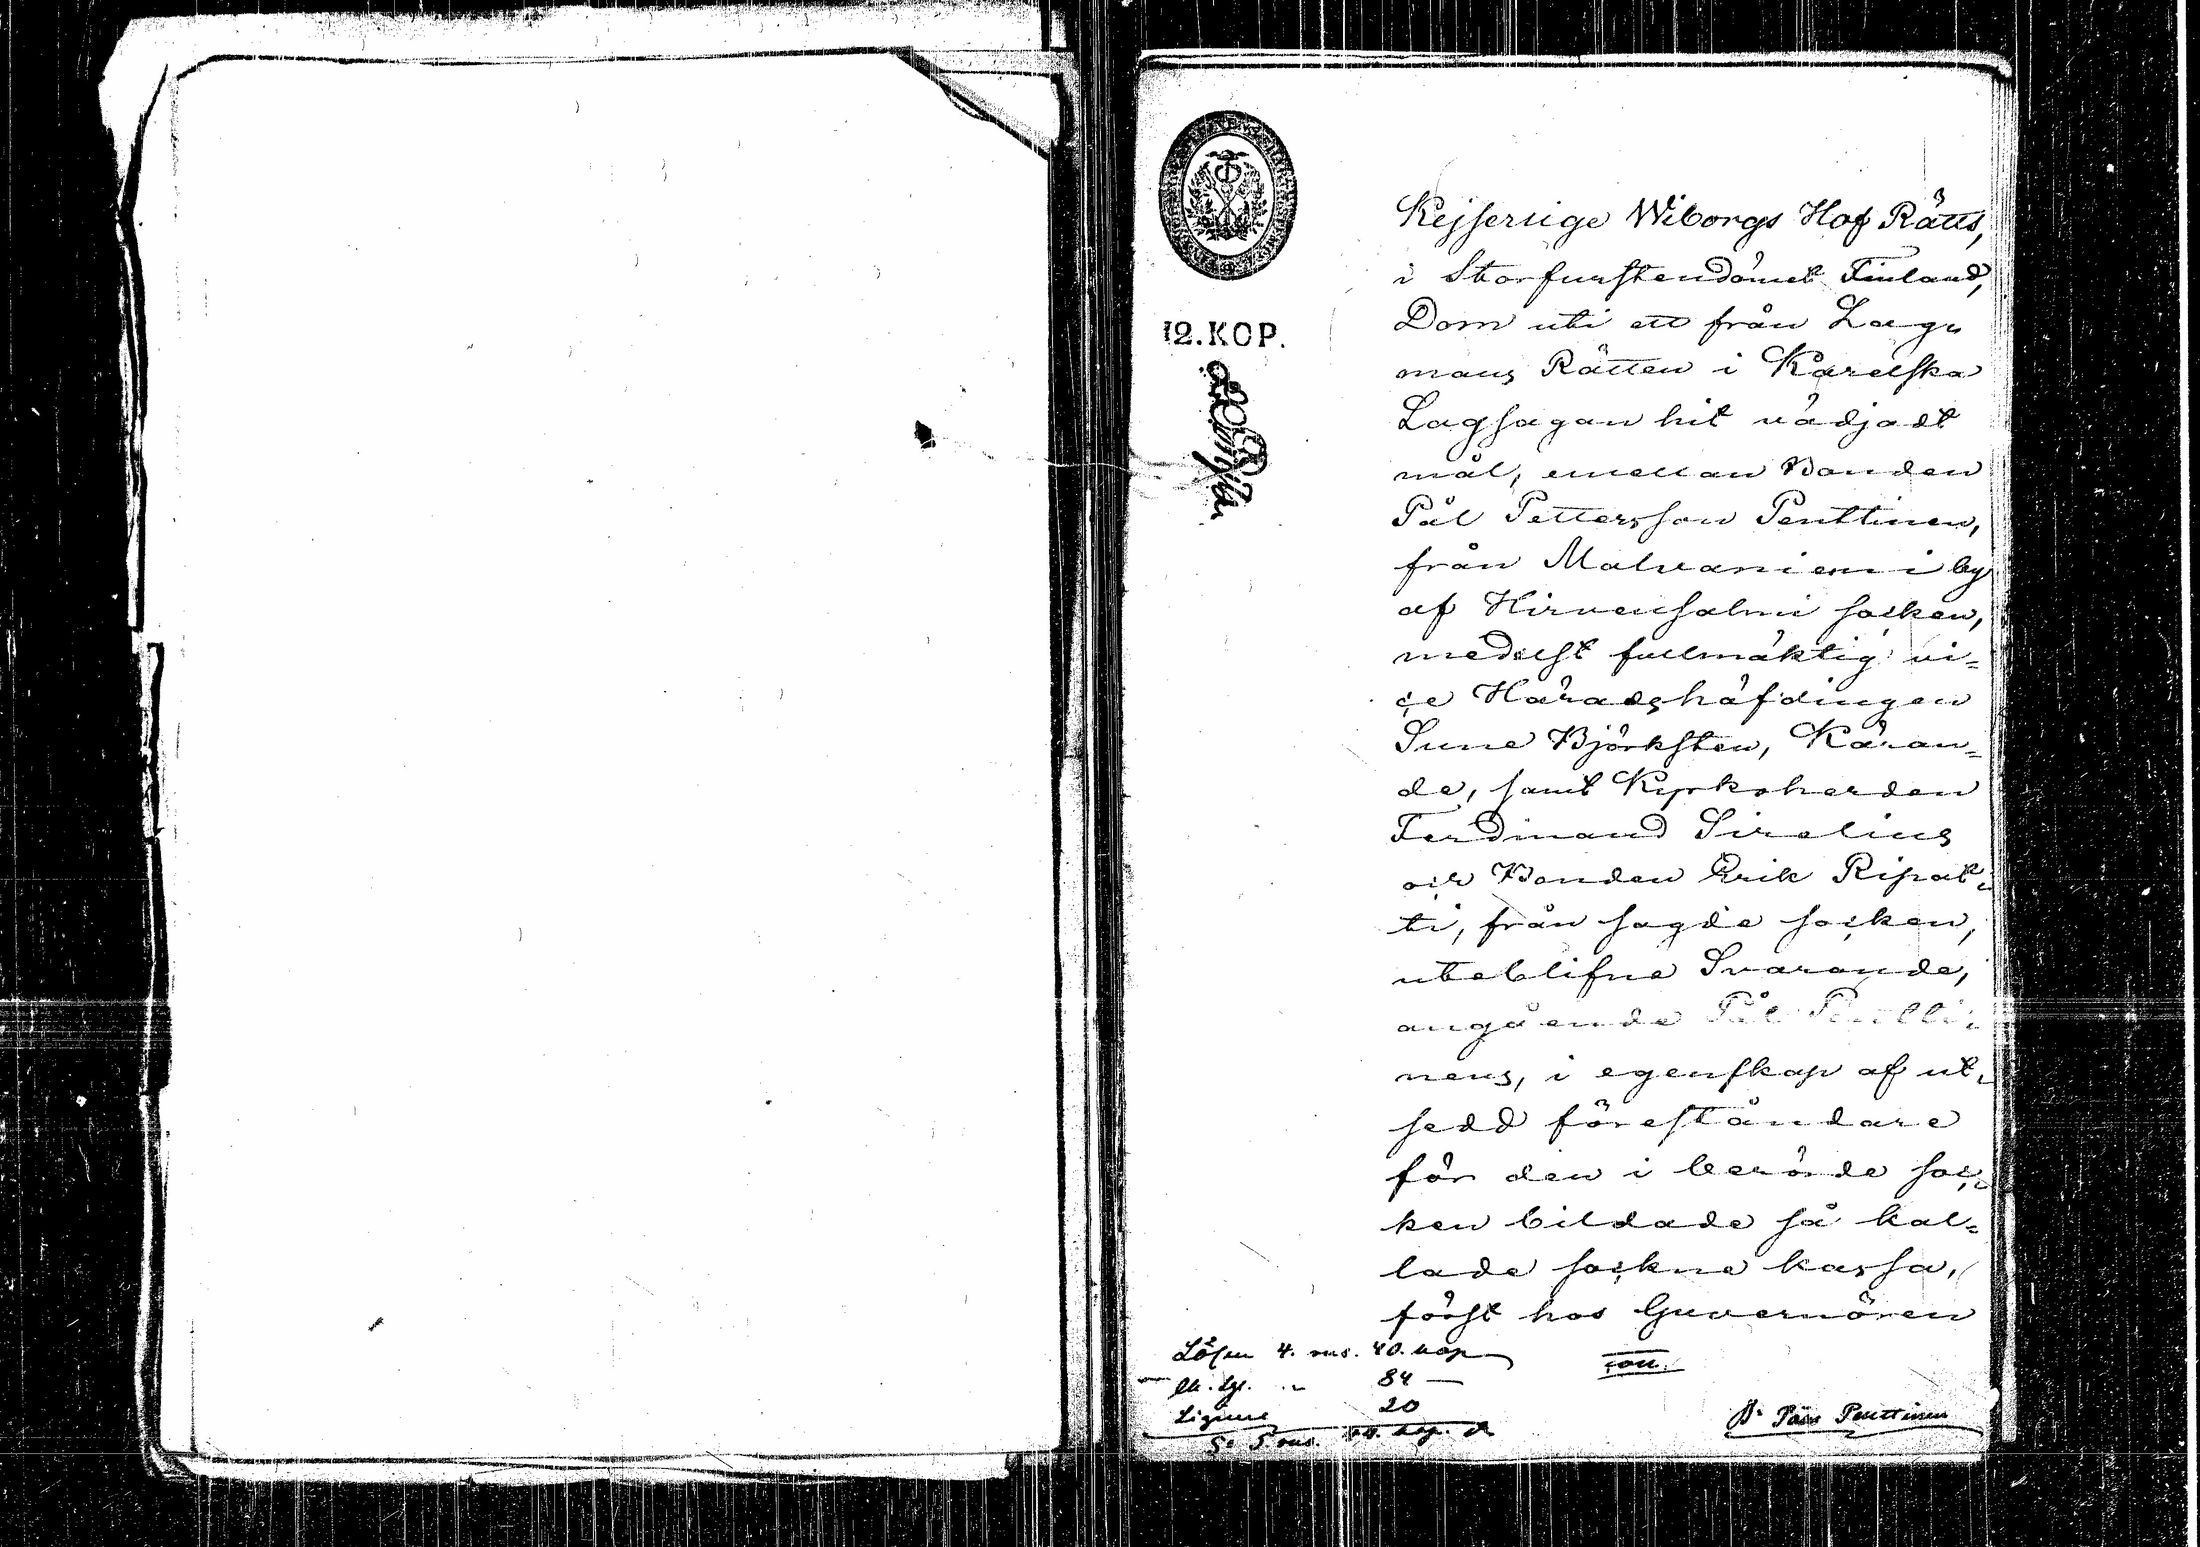 12.KOP.
Kejserlige Wiborgs Hof Rätts,
i Storfurstendömet Finland,
Dom uti ett från Lag-
mans Rätten i Karelska
Lagsagan hit vädjadt
mål, emellan Bonden
Pål Pettersson Penttinen,
från Malvaniemi by
af Hirvensalmi socken,
medelst fullmäktig vi-
ce Häradshöfdingen
Sune Björksten, Käran-
de, samt Kyrkoherden
Ferdinand Sirelius
och Bonden Erik Ripat-
ti, från sagde socken,
uteblifne Svarande,
angående Pål Pentti-
nens, i egenskap af ut-
sedd föreståndare
för den i berörde soc-
ken bildade så kal-
lade sockne kassa,
först hos Guvernören
Lösen 4. rus. 40. kop
coll.
84 —
Signure 20
Pål Penttinen
S:a 5 rus. kop.